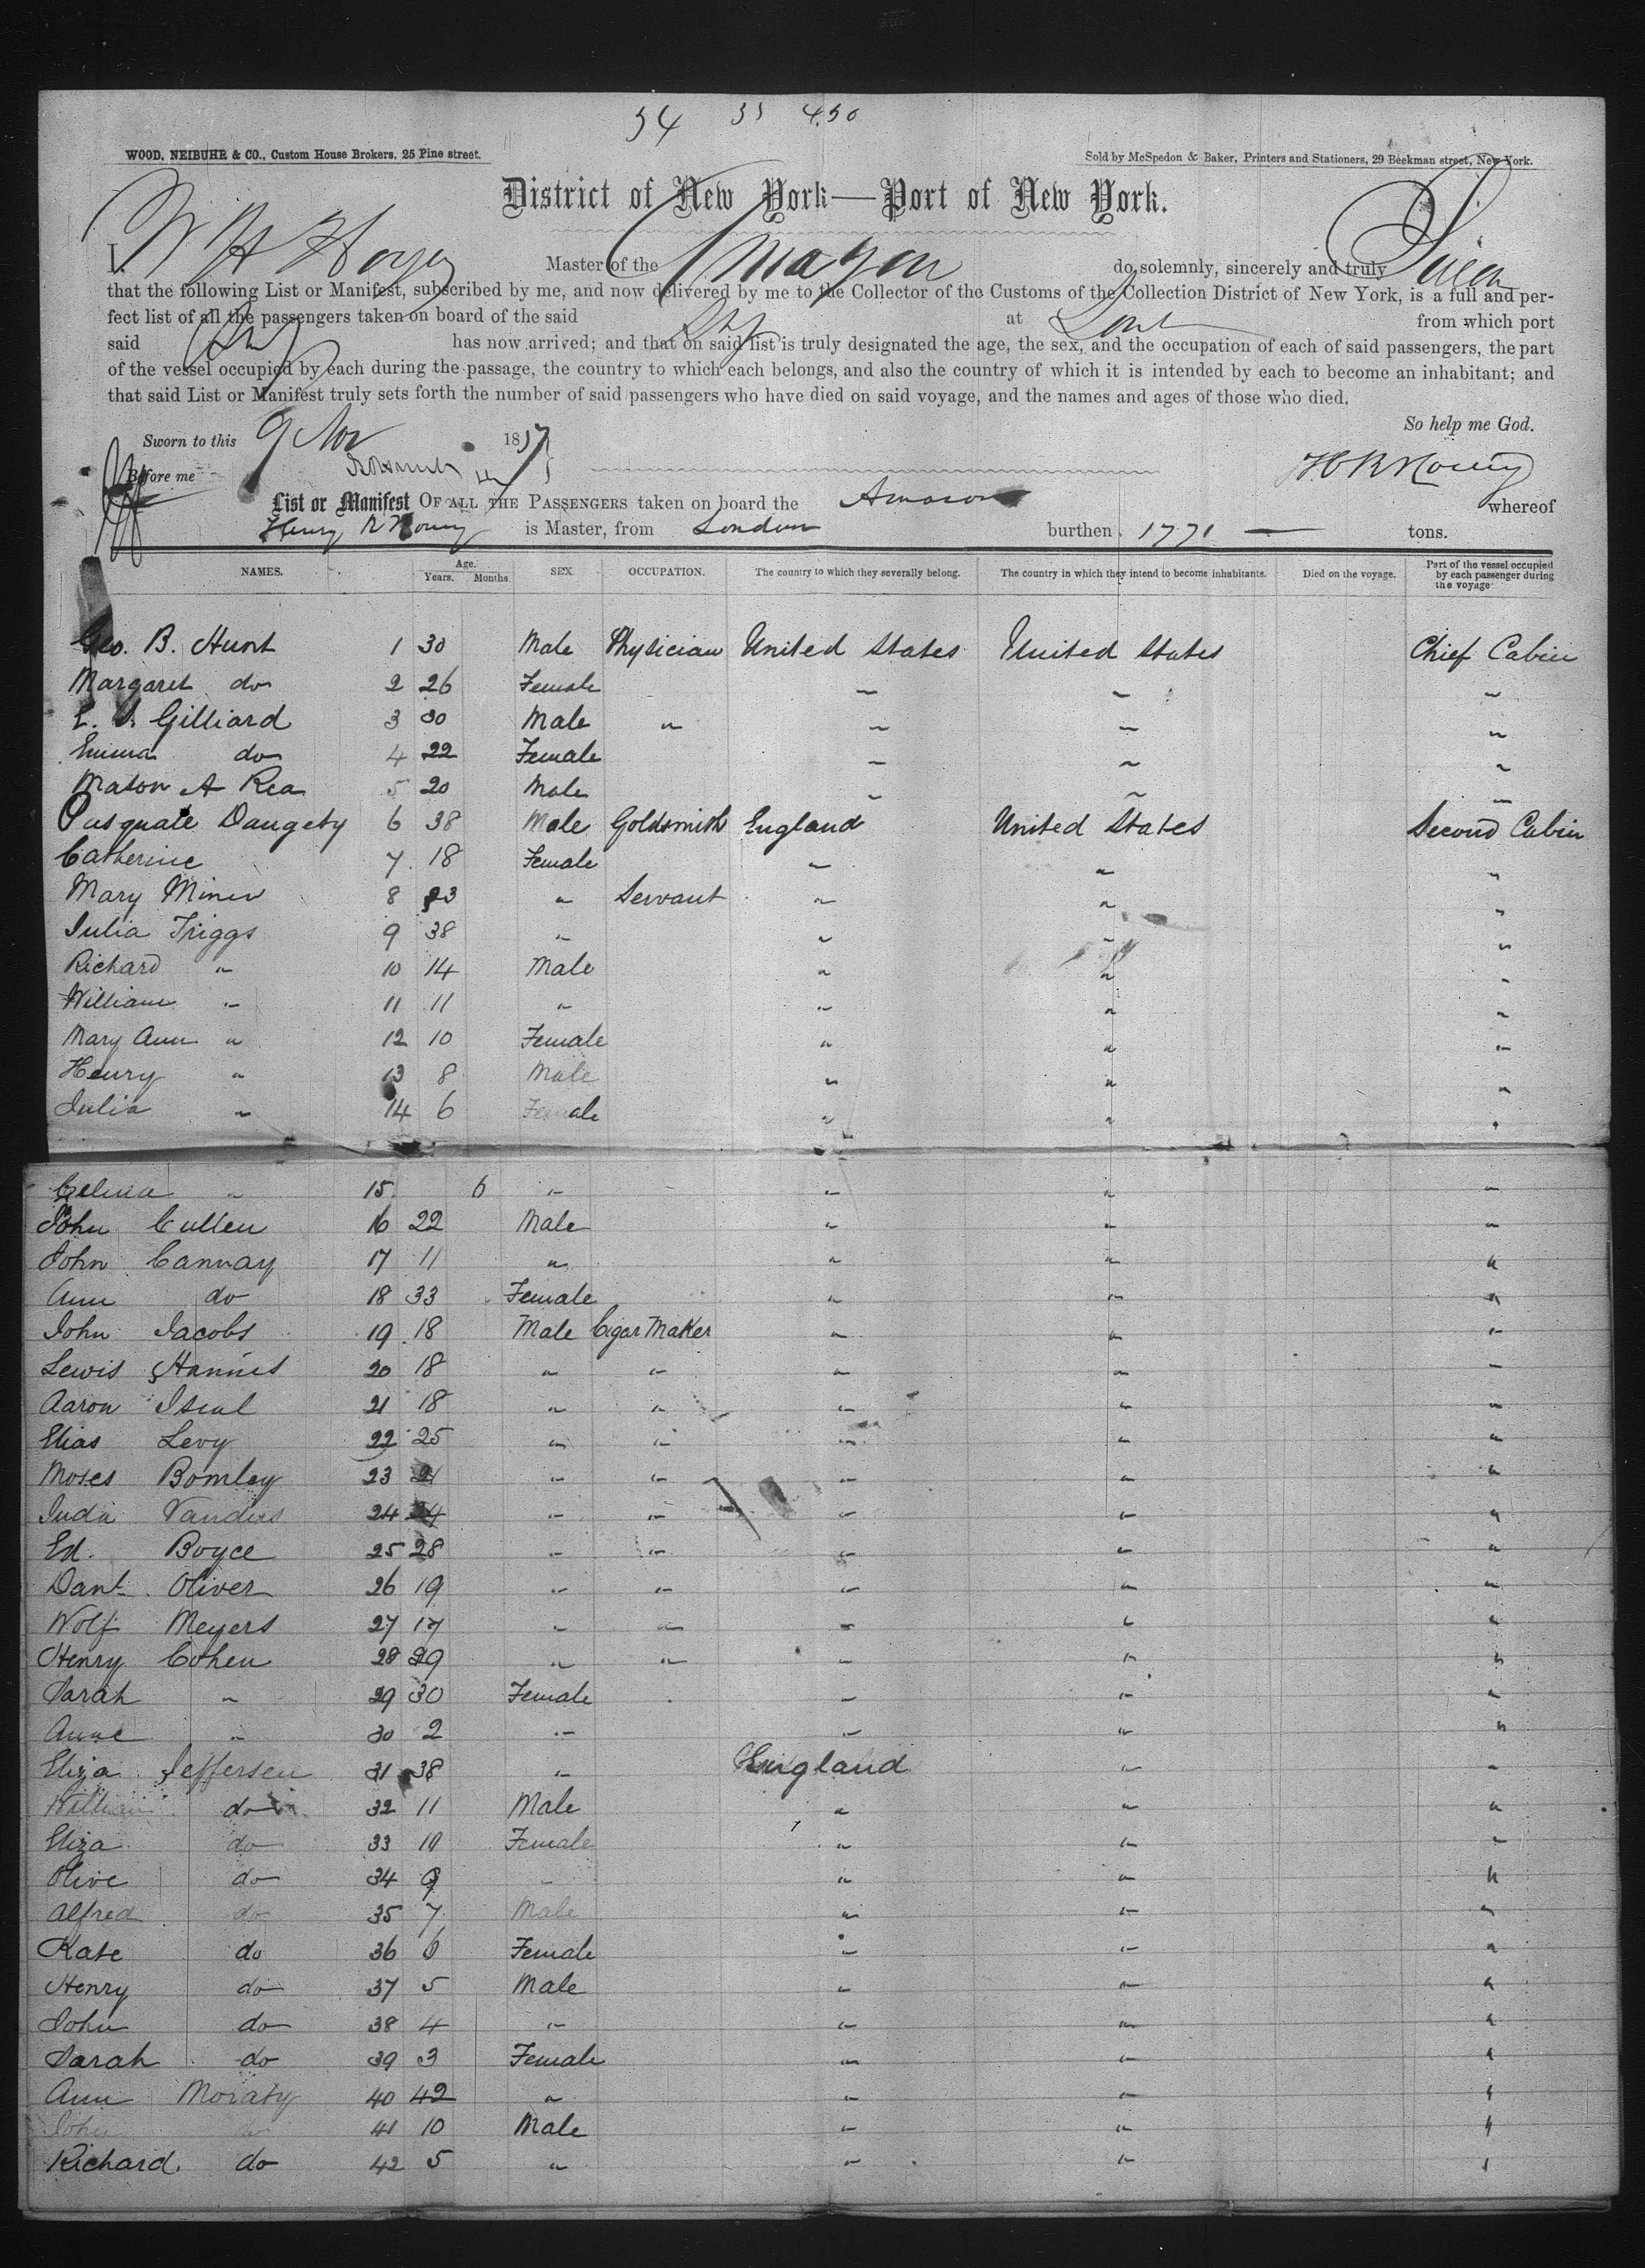 34 35 450
WOOD, NEIBUHR & CO., Custom House Brokers, 25 Pine street. Sold by McSpedon & Baker, Printers and Stationers, 29 Beekman street, New York.
District of New York—Port of New York.
I, Master of the Amazon do solemnly, sincerely and truly
that the following List or Manifest, subscribed by me, and now delivered by me to the Collector of the Customs of the Collection District of New York, is a full and per-
fect list of all the passengers taken on board of the said Ship at from which port
said Ship has now arrived; and that on said list is truly designated the age, the sex, and the occupation of each of said passengers, the part
of the vessel occupied by each during the passage, the country to which each belongs, and also the country of which it is intended by each to become an inhabitant; and
that said List or Manifest truly sets forth the number of said passengers who have died on said voyage, and the names and ages of those who died.
So help me God.
Sworn to this 9 Nov 1857
Before me
List or Manifest OF ALL THE PASSENGERS taken on board the Amazon whereof
Henry R is Master, from London burthen 1771 — tons.
NAMES. Age. Years. Months. SEX. OCCUPATION. The country to which they severally belong. The country in which they intend to become inhabitants. Died on the voyage. Part of the vessel occupied by each passenger during the voyage
Geo. B. Hunt 1 30 Male Physician United States United States Chief Cabin
Margaret do 2 26 Female " " "
Gilliard 3 30 Male " " " "
Emma do 4 22 Female " " "
Mason A Rea 5 20 Male " " "
Pasquale Daugety 6 38 Male Goldsmith England United States Second Cabin
Catherine 7 18 Female " " "
Mary Miner 8 23 " Servant " " "
Julia Triggs 9 38 " " " "
Richard " 10 14 Male " " "
William " 11 11 " " " "
Mary Ann " 12 10 Female " " "
Henry " 13 8 Male " " "
Julia " 14 6 Female " " "
Celina " 15 6 " " " "
John Cullen 16 22 Male " " "
John Cannay 17 11 " " " "
Ann do 18 33 Female " " "
John Jacobs 19 18 Male Cigar Maker " " "
Lewis Hannes 20 18 " " " " "
Aaron Iseul 21 18 " " " " "
Elias Levy 22 25 " " " " "
Moses Bomley 23 21 " " " " "
Juda 24 24 " " " " "
Ed. Boyce 25 28 " " " " "
Danl. Oliver 26 19 " " " " "
Wolf Meyers 27 17 " " " " "
Henry Cohen 28 29 " " " " "
Sarah " 29 30 Female " " "
Anne " 30 2 " " " "
Eliza Jeffersen 31 38 " England " "
William do 32 11 Male " " "
Eliza do 33 10 Female " " "
Olive do 34 9 " " " "
Alfred do 35 7 Male " " "
Kate do 36 6 Female " " "
Henry do 37 5 Male " " "
John do 38 4 " " " "
Sarah do 39 3 Female " " "
Ann Moraty 40 42 " " " "
John do 41 10 Male " " "
Richard. do 42 5 " " " "